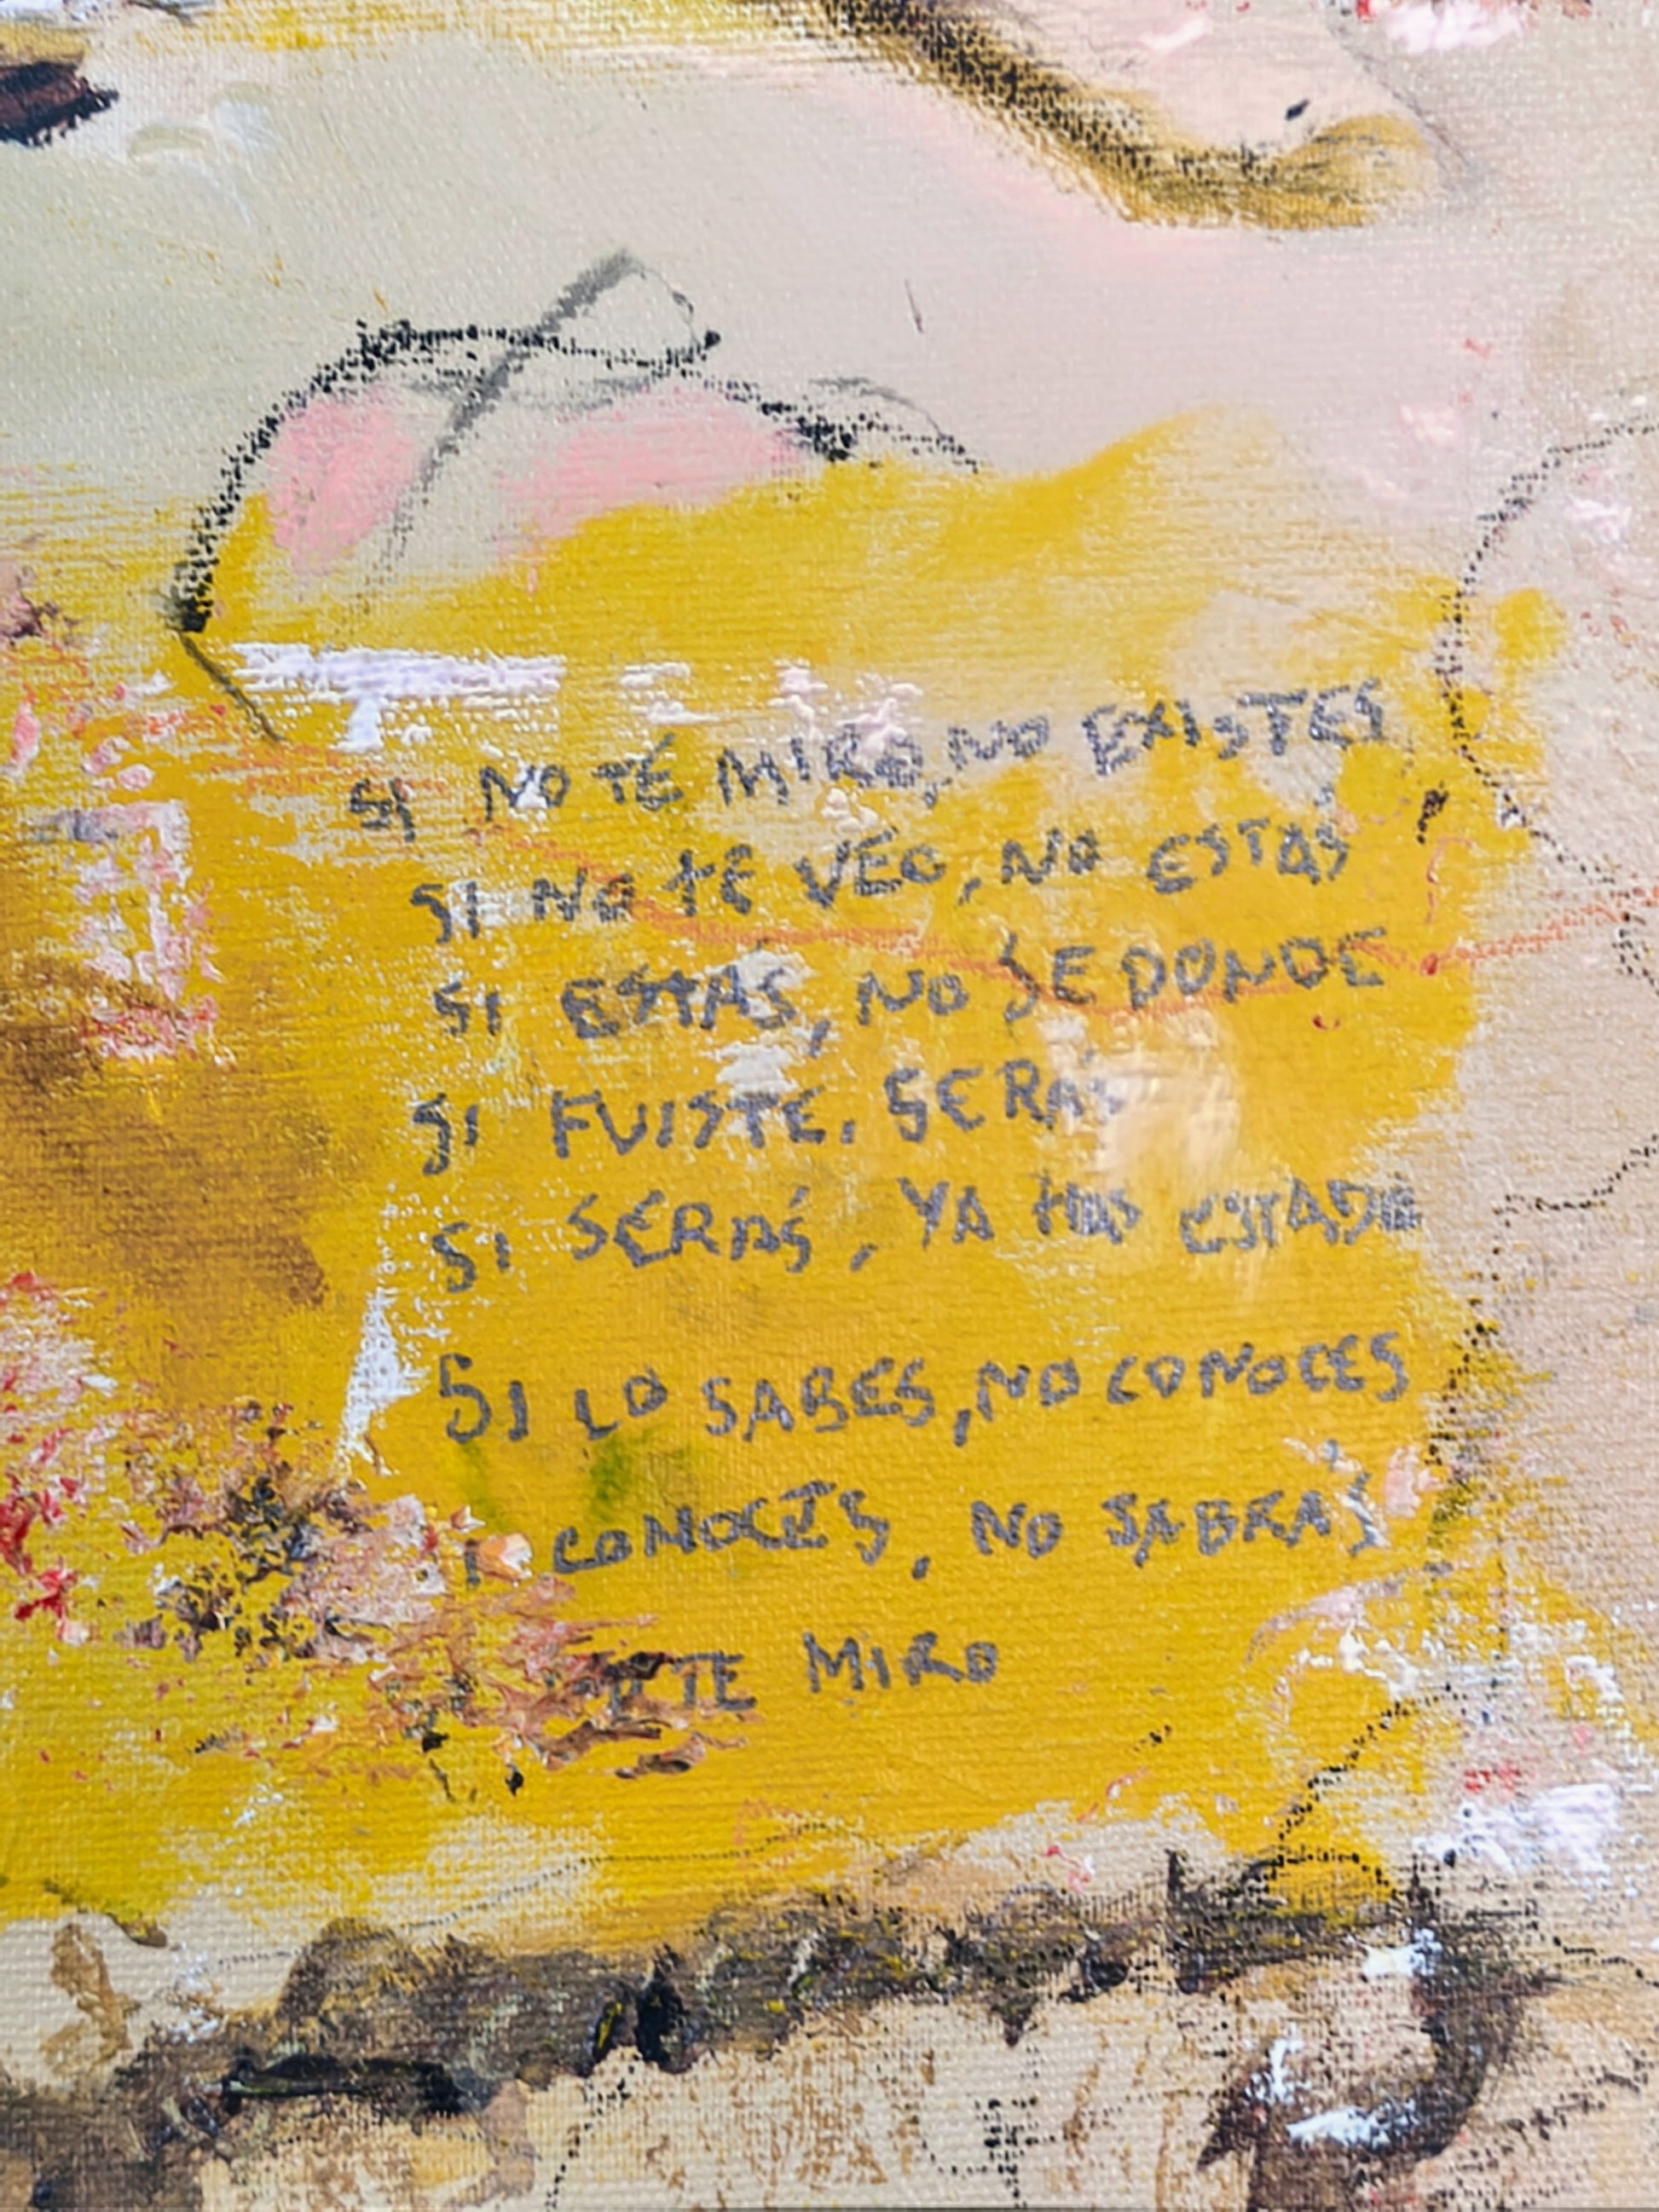 SI NO TE MIRO, NO EXISTES
SI NO TE VEO, NO ESTÁS
SI ESTÁS, NO SE DONDE
SI FUISTE, SERÁS
SI SERÁS, YA HAS ESTADO
SI LO SABES, NO CONOCES
CONOCES, NO SABRÁS
TE MIRO